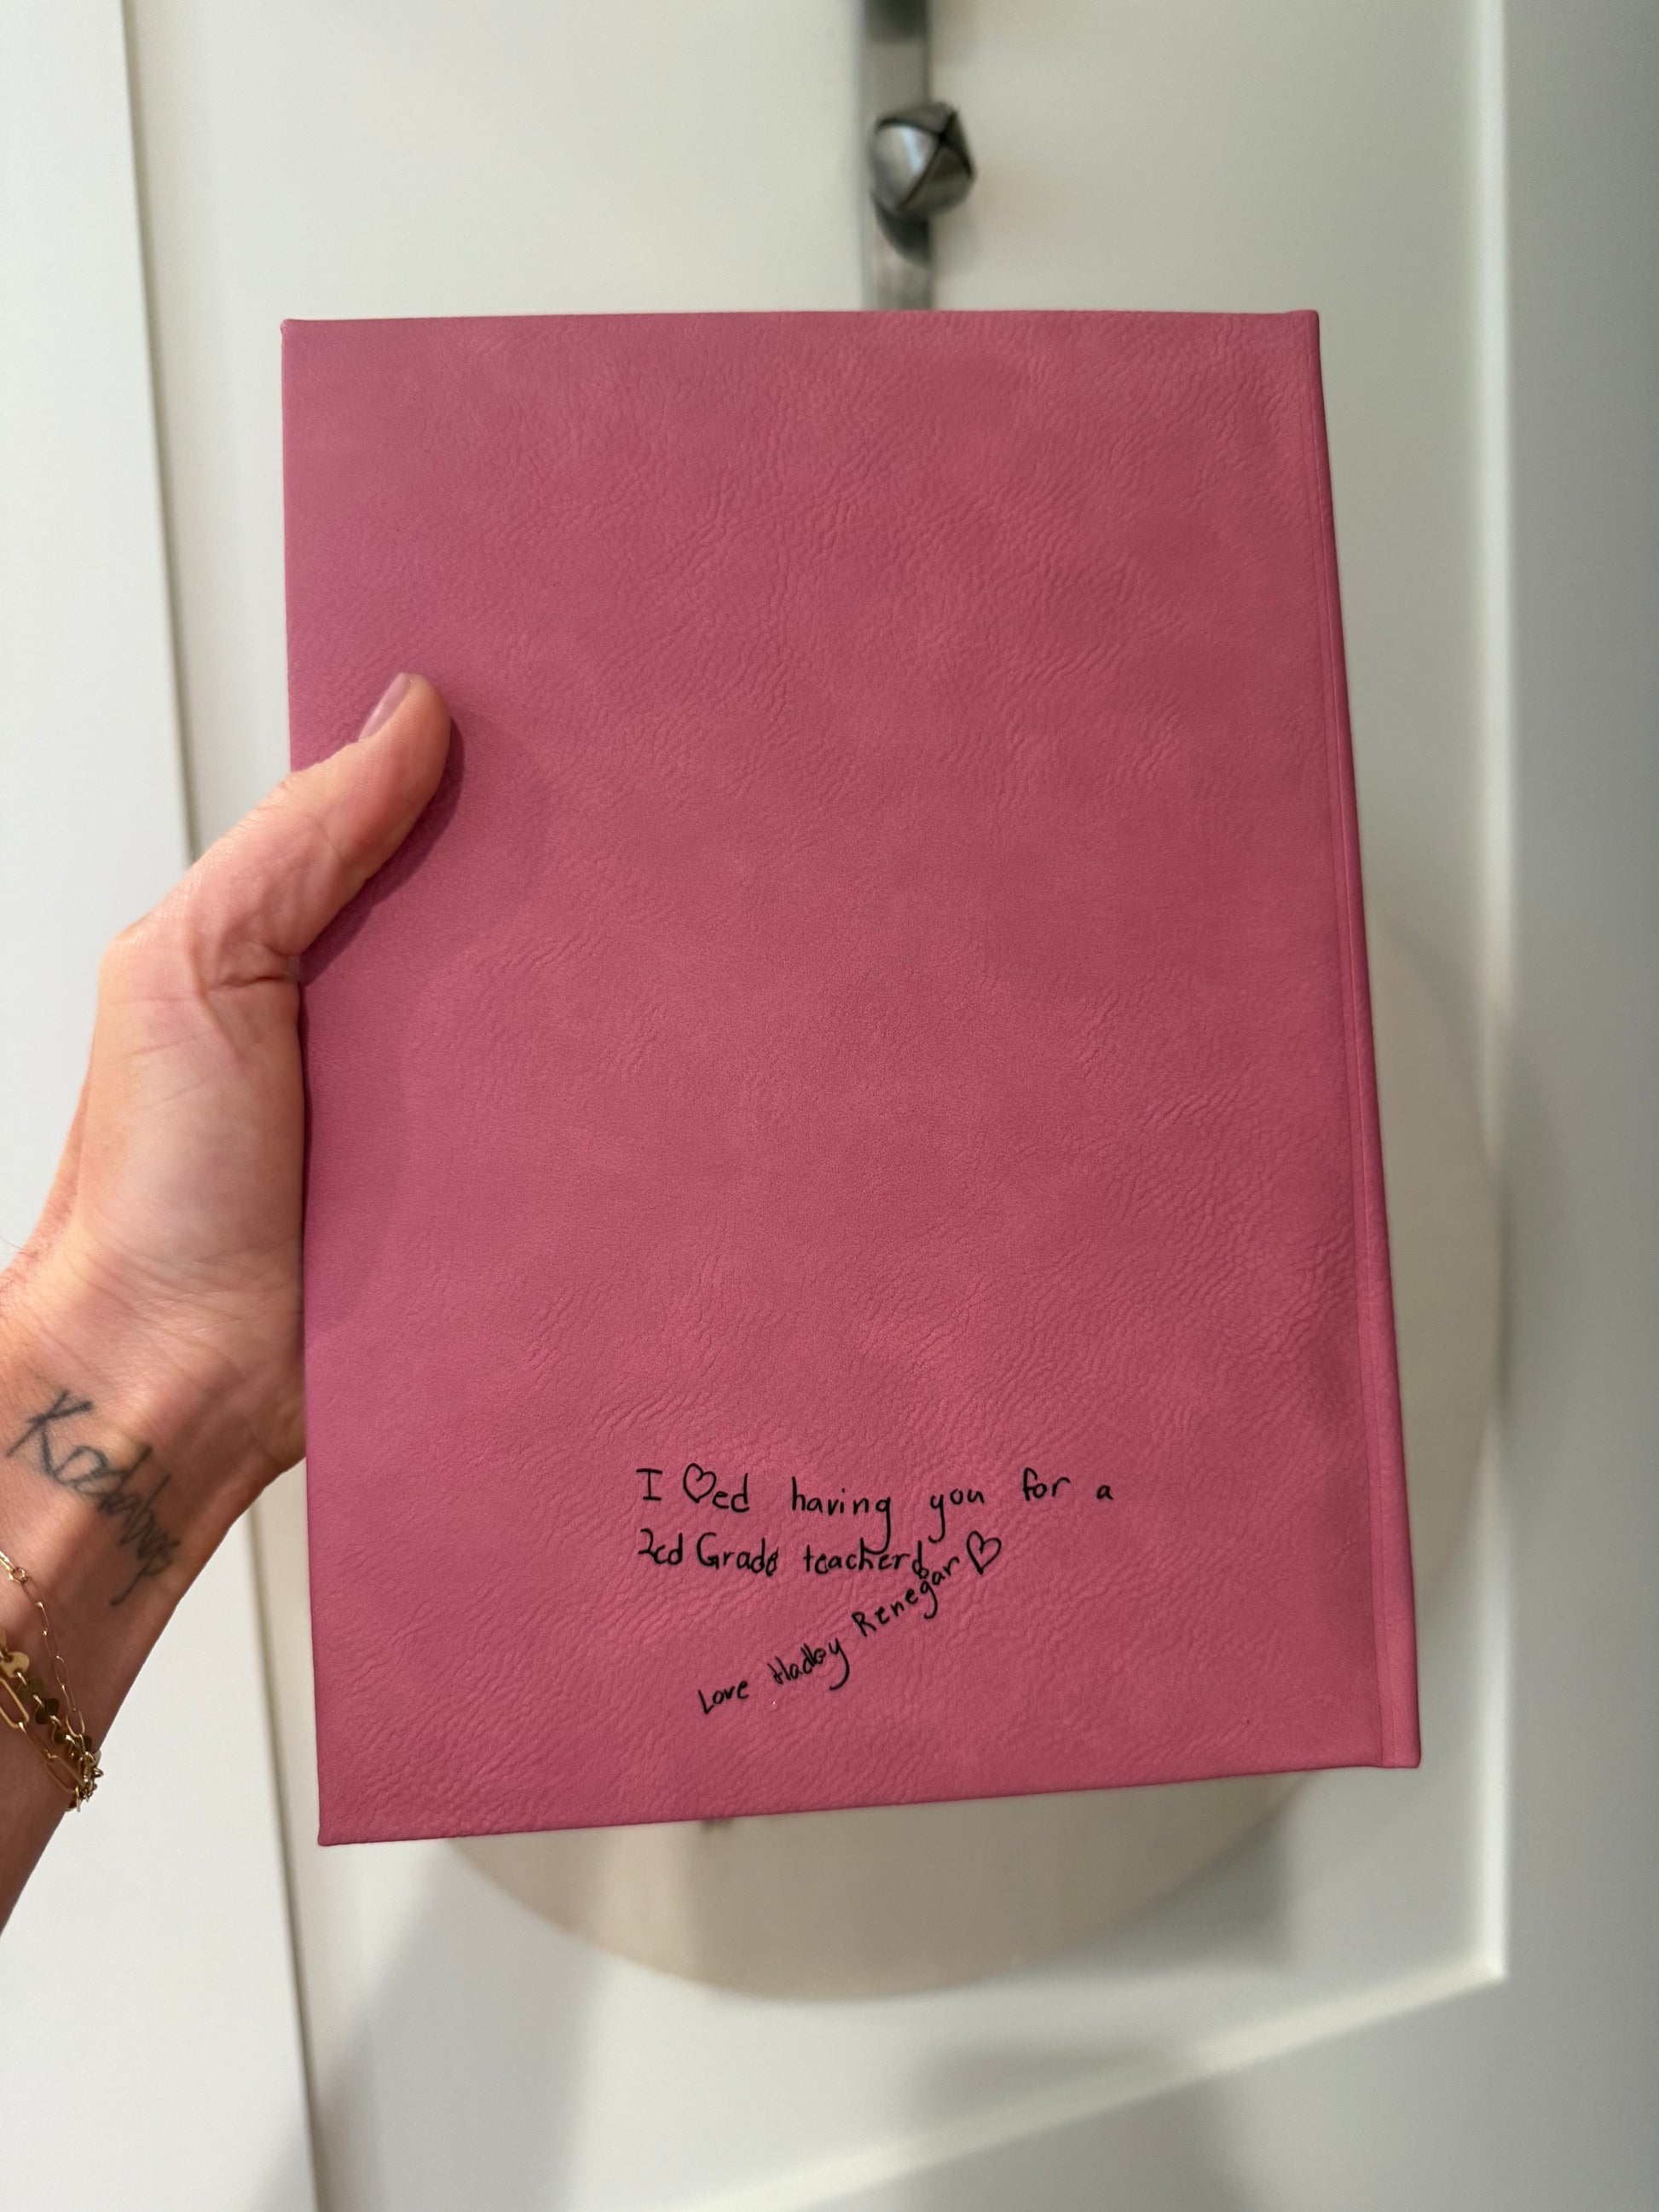 I ♡ed having you for a
2cd Grade teacher
Love Hadley Renegar ♡